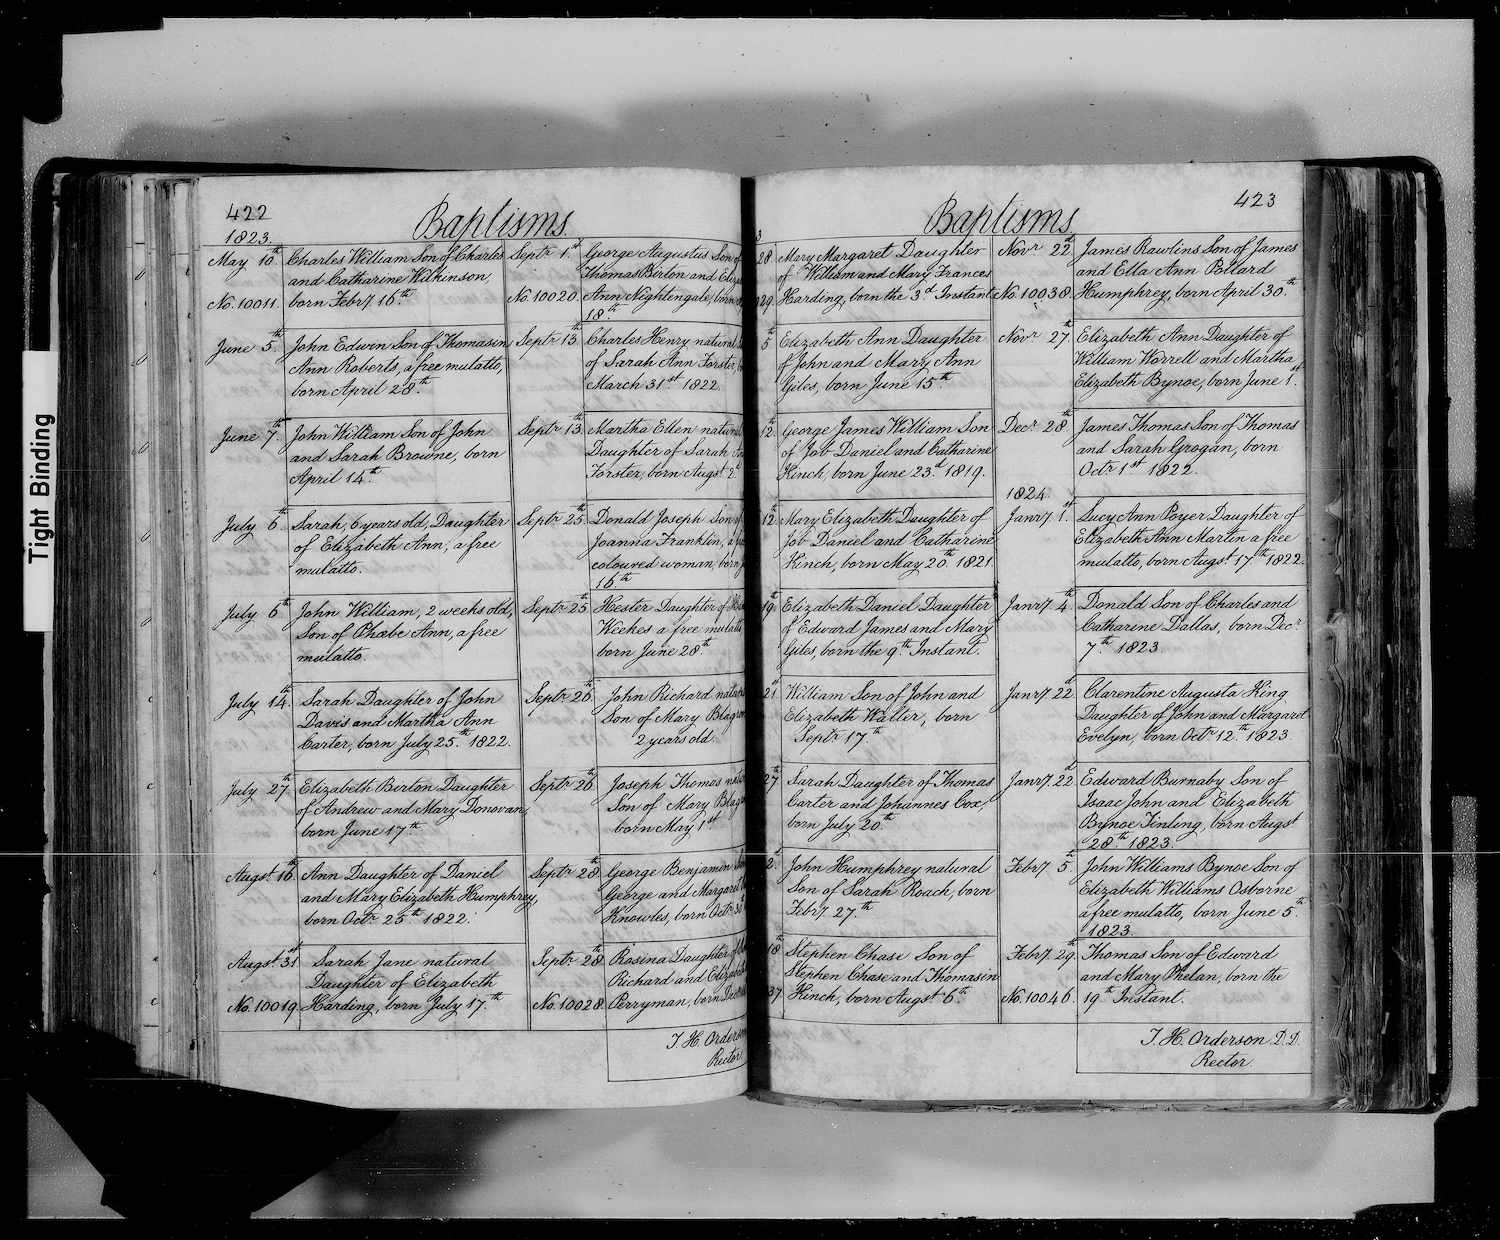 Tight Binding
422
Baptisms
1823.
May 10th
Charles William Son of Charles
and Catharine Wilkinson,
No. 10011.
born Febry 16th
June 5th
John Edwin Son of Thomasin
Ann Roberts, a free mulatto,
born April 28th
June 7th
John William Son of John
and Sarah Browne, born
April 14th
July 6th
Sarah, 6 years old, Daughter
of Elizabeth Ann, a free
mulatto.
July 6th
John William, 2 weeks old,
Son of Phœbe Ann, a free
mulatto.
July 14th
Sarah Daughter of John
Davis and Martha Ann
Carter, born July 25th 1822.
July 27th
Elizabeth Berton Daughter
of Andrew and Mary Donovan,
born June 17th
Augst 16th
Ann Daughter of Daniel
and Mary Elizabeth Humphrey,
born Octr 25th 1822.
Augst 31st
Sarah Jane natural
Daughter of Elizabeth
No. 10019
Harding, born July 17th
Septr 1st
George Augustus Son of
Thomas Berton and
No. 10020.
Ann Nightengale, born
18th
Septr 13th
Charles Henry natural
of Sarah Ann Forster,
March 31st 1822.
Septr 13th
Martha Ellen natural
Daughter of Sarah
Forster, born Augst 2d
Septr 25th
Donald Joseph Son of
Joanna Franklin, a
coloured woman, born
16th
Septr 25th
Hester Daughter of
Weekes a free mulatto
born June 28th
Septr 26th
John Richard natural
Son of Mary
2 years old.
Septr 26th
Joseph Thomas
Son of Mary
born May 1st
Septr 28th
George Benjamin
George and Margaret
Knowles, born Octr
Septr 28th
Rosina Daughter of
Richard and Elizabeth
No. 10028
Perryman, born
T. H. Orderson
Rector
423
Baptisms
3
28
Mary Margaret Daughter
of William and Mary Frances
29
Harding, born the 3d Instant
5th
Elizabeth Ann Daughter
of John and Mary Ann
Giles, born June 15th
12th
George James William Son
of Job Daniel and Catharine
Kinch, born June 23d 1819.
12th
Mary Elizabeth Daughter of
Job Daniel and Catharine
Kinch, born May 20th 1821.
19th
Elizabeth Daniel Daughter
of Edward James and Mary
Giles, born the 9th Instant.
21st
William Son of John and
Elizabeth Walter, born
Septr 17th
27th
Sarah Daughter of Thomas
Carter and Johannes Cox,
born July 20th
2d
John Humphrey natural
Son of Sarah Roach, born
Febry 27th
18th
Stephen Chase Son of
Stephen Chase and Thomasin
37
Kinch, born Augst 6th
Novr 22d
James Rawlins Son of James
and Ella Ann Pollard
No. 10038
Humphrey, born April 30th
Novr 27th
Elizabeth Ann Daughter of
William Worrell and Martha
Elizabeth Bynoe, born June 1st
Decr 28th
James Thomas Son of Thomas
and Sarah Grogan, born
Octr 1st 1822.
1824.
Janry 1st
Lucy Ann Poyer Daughter of
Elizabeth Ann Martin a free
mulatto, born Augst 17th 1822.
Janry 4th
Donald Son of Charles and
Catharine Dallas, born Decr
7th 1823.
Janry 22d
Clarentine Augusta King
Daughter of John and Margaret
Evelyn, born Octr 12th 1823.
Janry 22d
Edward Burnaby Son of
Isaac John and Elizabeth
Bynoe Finling, born Augst
28th 1823.
Febry 5th
John Williams Bynoe Son of
Elizabeth Williams Osborne
a free mulatto, born June 5th
1823.
Febry 29th
Thomas Son of Edward
and Mary Phelan, born the
No. 10046.
19th Instant.
T. H. Orderson D.D.
Rector.